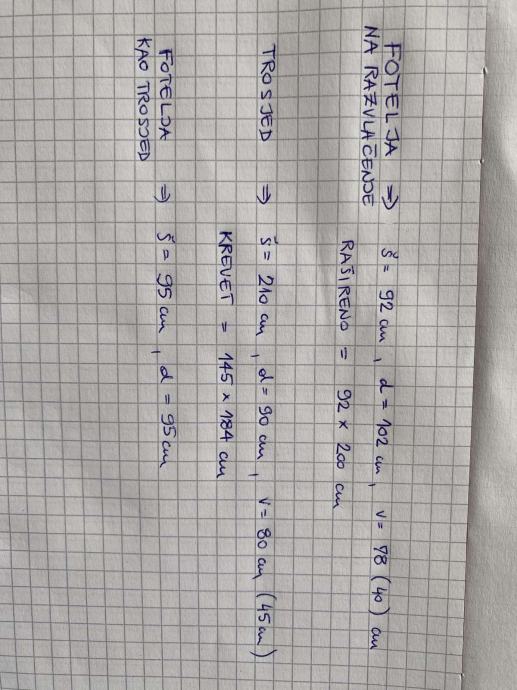 FOTELJA => š = 92 cm, d = 102 cm, v = 78 (40) cm
NA RAZVLAČENJE RAŠIRENO = 92 x 200 cm
TROSJED => š = 210 cm, d = 90 cm, v = 80 cm (45 cm)
KREVET = 145 x 184 cm
FOTELJA => š = 95 cm, d = 95 cm
KAO TROSJED